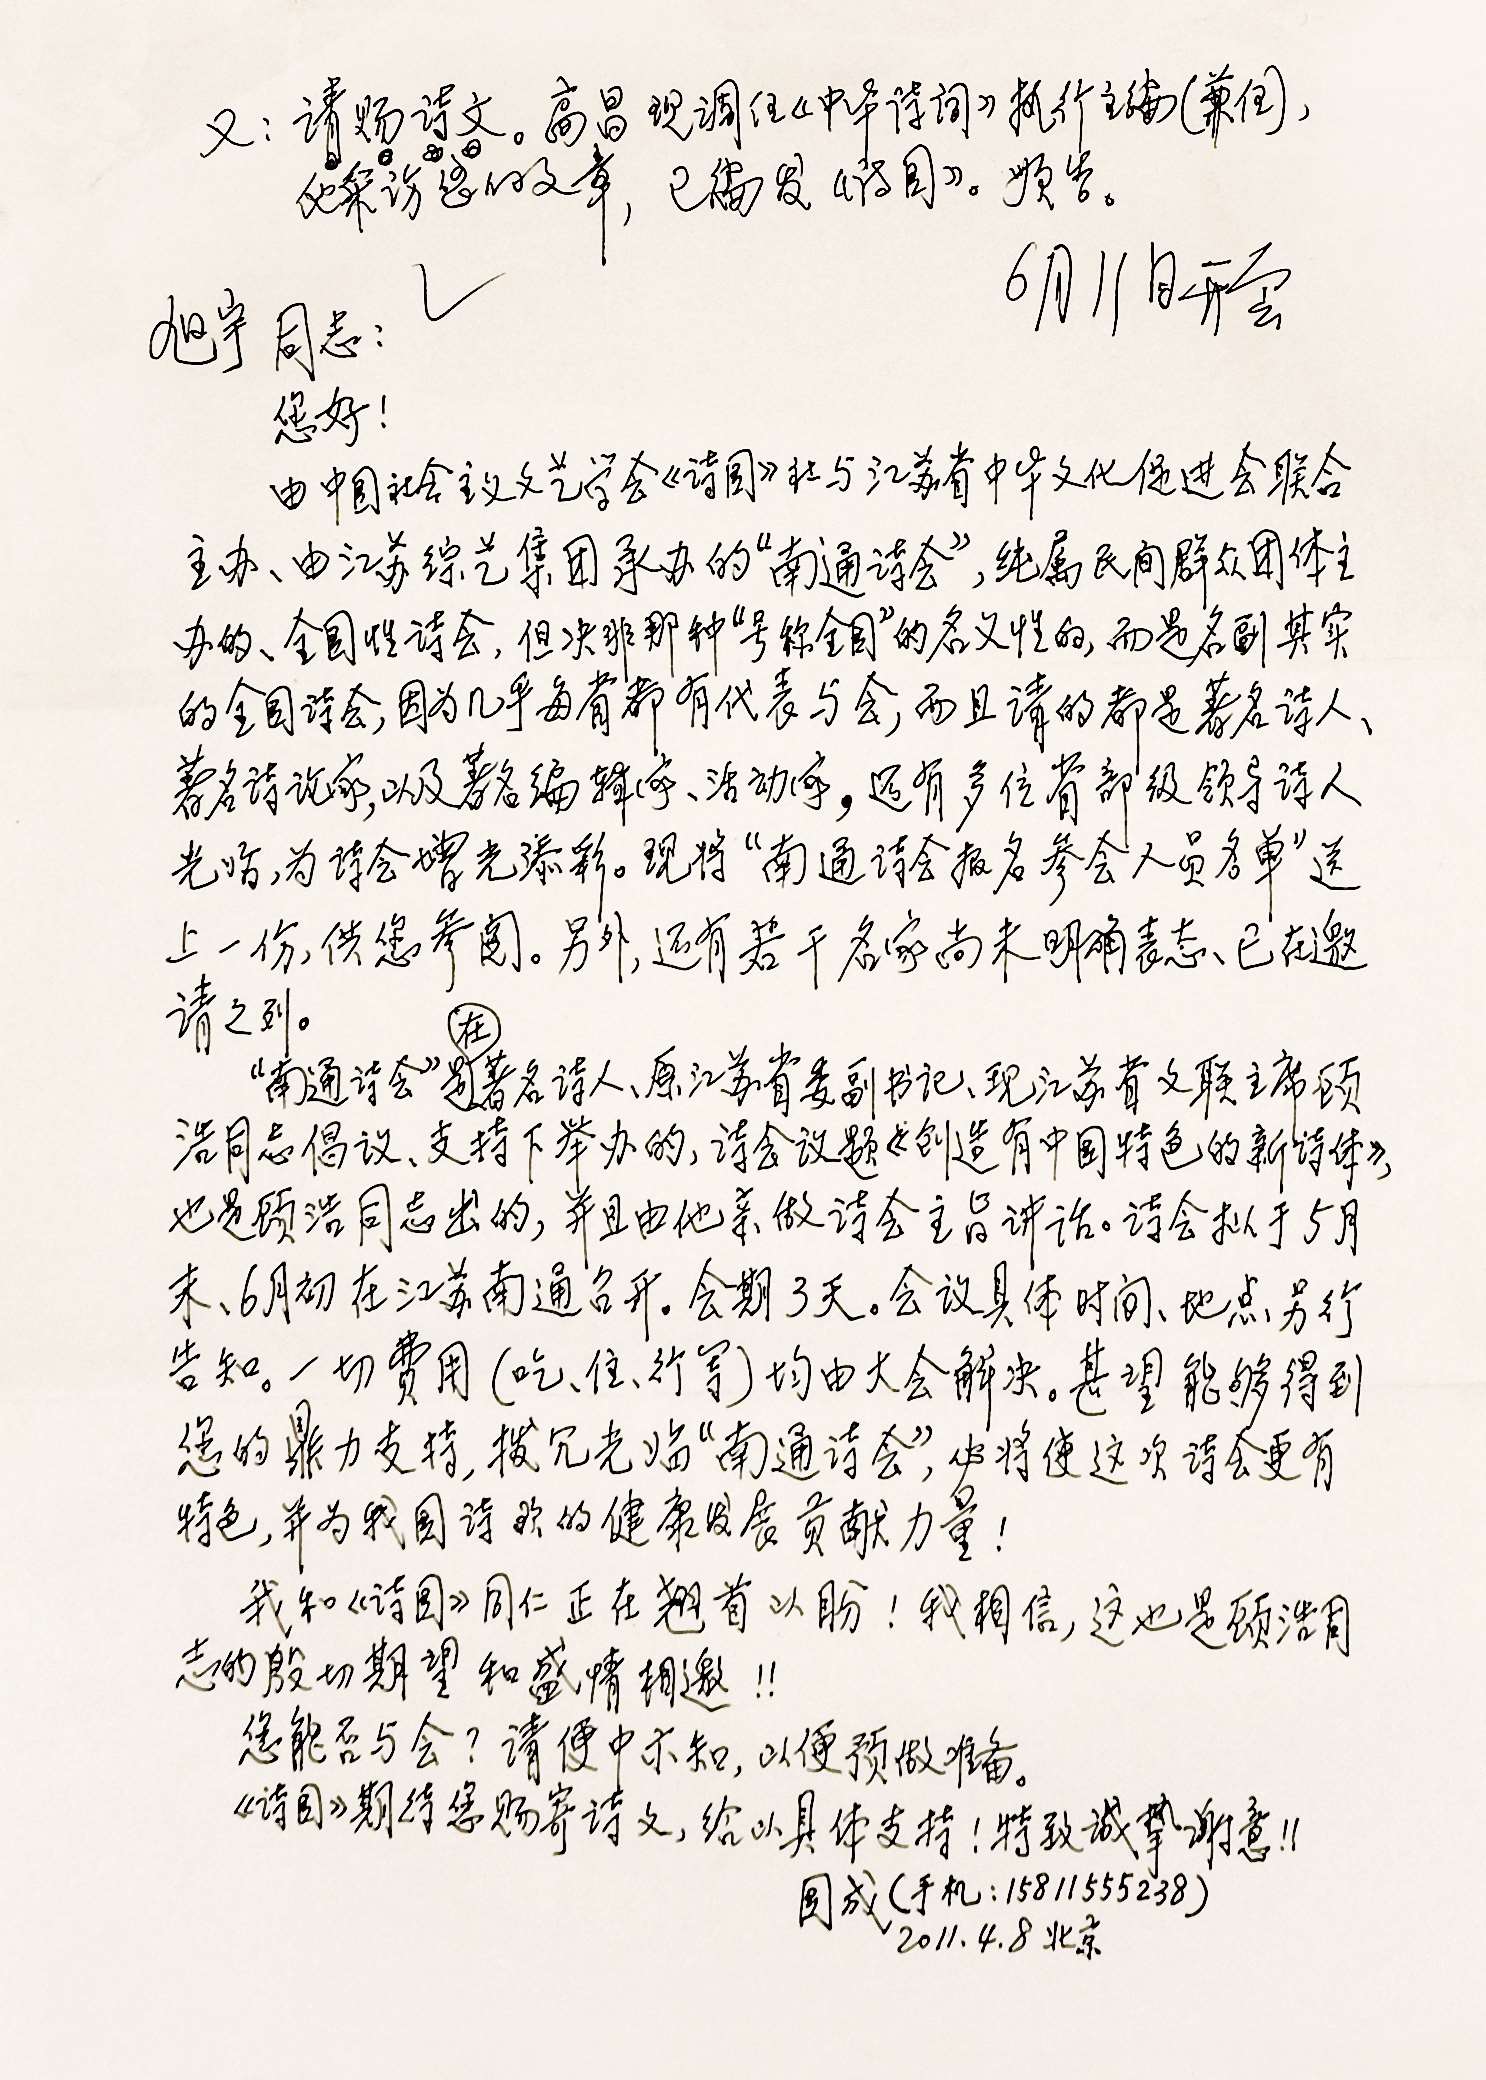 又：请赐诗文。高昌现调任《中华诗词》执行主编(兼任)，
他采访您的文章，已编发《诗国》。顺告。
6月11日开会
旭宇同志：
您好！
由中国社会主义文艺学会《诗国》社与江苏省中华文化促进会联合
主办、由江苏综艺集团承办的“南通诗会”，纯属民间群众团体主
办的、全国性诗会，但决非那种“号称全国”的名义性的，而是名副其实
的全国诗会，因为几乎每省都有代表与会，而且请的都是著名诗人、
著名诗论家，以及著名编辑家、活动家，还有多位省部级领导诗人
光临，为诗会增光添彩。现将“南通诗会报名参会人员名单”送
上一份，供您参阅。另外，还有若干名家尚未明确表态、已在邀
请之列。
“南通诗会”是在著名诗人、原江苏省委副书记、现江苏省文联主席顾
浩同志倡议、支持下举办的，诗会议题《创造有中国特色的新诗体》，
也是顾浩同志出的，并且由他亲做诗会主旨讲话。诗会拟于5月
末、6月初在江苏南通召开。会期3天。会议具体时间、地点、另行
告知。一切费用(吃、住、行等)均由大会解决。甚望能够得到
您的鼎力支持，拨冗光临“南通诗会”，必将使这次诗会更有
特色，并为我国诗歌的健康发展贡献力量！
我和《诗国》同仁正在翘首以盼！我相信，这也是顾浩同
志的殷切期望和盛情相邀！！
您能否与会？请便中示知，以便预做准备。
《诗国》期待您赐寄诗文，给以具体支持！特致诚挚谢意！！
国成(手机：15811555238)
2011.4.8 北京